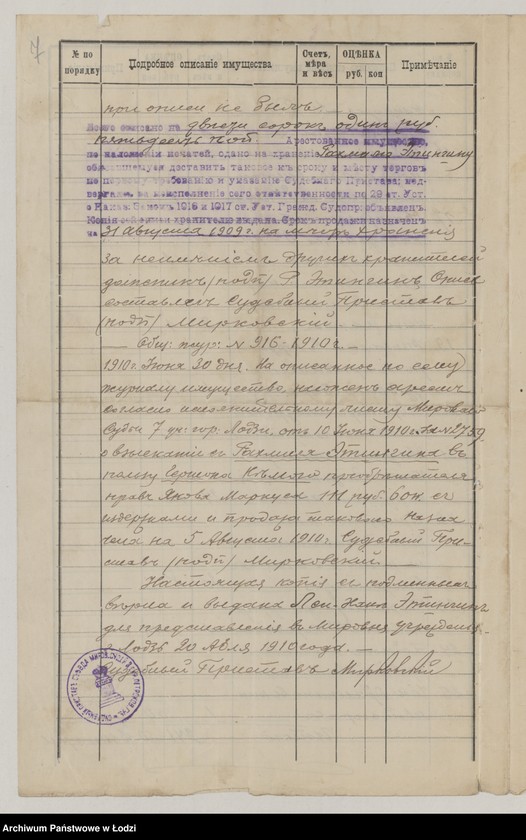 7
№ по порядку
Подробное описаніе имущества
Счетъ, мѣра и вѣсъ
ОЦѢНКА
руб. коп
Примѣчаніе
при описи не былъ
Всего описано на двѣсти сорокъ одинъ руб.
пятьдесятъ коп. Арестованное имущество,
по наложеніи печатей, сдано на храненіе Рахмилю Этингину
обязавшемуся доставить таковое къ сроку и мѣсту торговъ
по первому требованію и указанію Судебнаго Пристава; под-
вергаясь за неисполненіе сего отвѣтственности по 29 ст. Уст.
о Наказ. 1016 и 1017 ст. Уст. Гражд. Судопр. объявлен.
Копія сей описи хранителю выдана. Срокъ продажи назначенъ
на 31 Августа 1909 г. на мѣстѣ храненія
За неимѣніемъ другихъ хранителей
должникъ (подп) Р. Этингинъ. Опись
составлялъ Судебный Приставъ
(подп) Мирковскій.
Общ. жур. № 916-1910 г.
1910 г. Іюня 30 дня. На описанное по сему
журналу имущество, наложенъ арестъ
согласно исполнительному листу Мирового
Судьи 7 уч. гор. Лодзи, отъ 10 Іюня 1910 г. за № 2759
о взысканіи съ Рахмиля Этингина въ
пользу Гершона пріобрѣтателя
правъ Якова Маркуса 111 руб. 60 к. съ
издержками и продажа таковаго назна-
чена на 5 Августа 1910 г. Судебный При-
ставъ (подп) Мирковскій
Настоящая копія съ подлиннымъ
вѣрна и выдана Этингинъ
для представленія въ Мировыя учрежденія.
г. Лодзь 20 1910 года.
Судебный Приставъ Мирковскій
Archiwum Państwowe w Łodzi